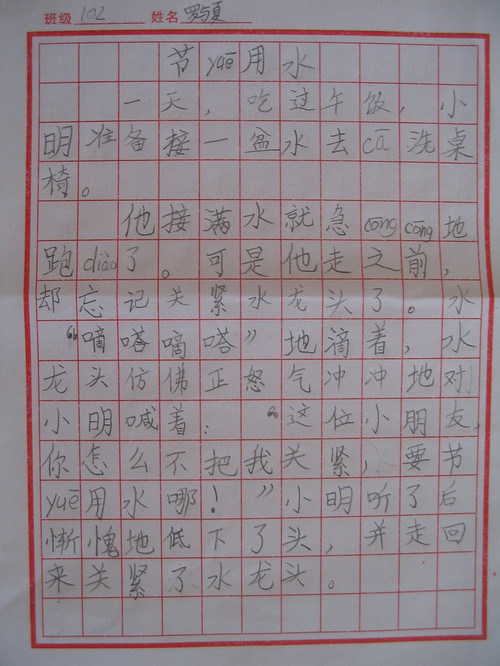 班级 102 姓名 罗与夏
节yuē用水
一天，吃过午饭，小
明准备接一盆水去cā洗桌
椅。
他接满水就急cōngcōng地
跑diào了。可是他走之前，
却忘记关紧水龙头了。水
“嘀嗒嘀嗒”地滴着，水
龙头仿佛正怒气冲冲地对
小明喊着：“这位小朋友，
你怎么不把我关紧，要节
yuē用水哪！”小明听了后
惭愧地低下了头，并走回
来关紧了水龙头。